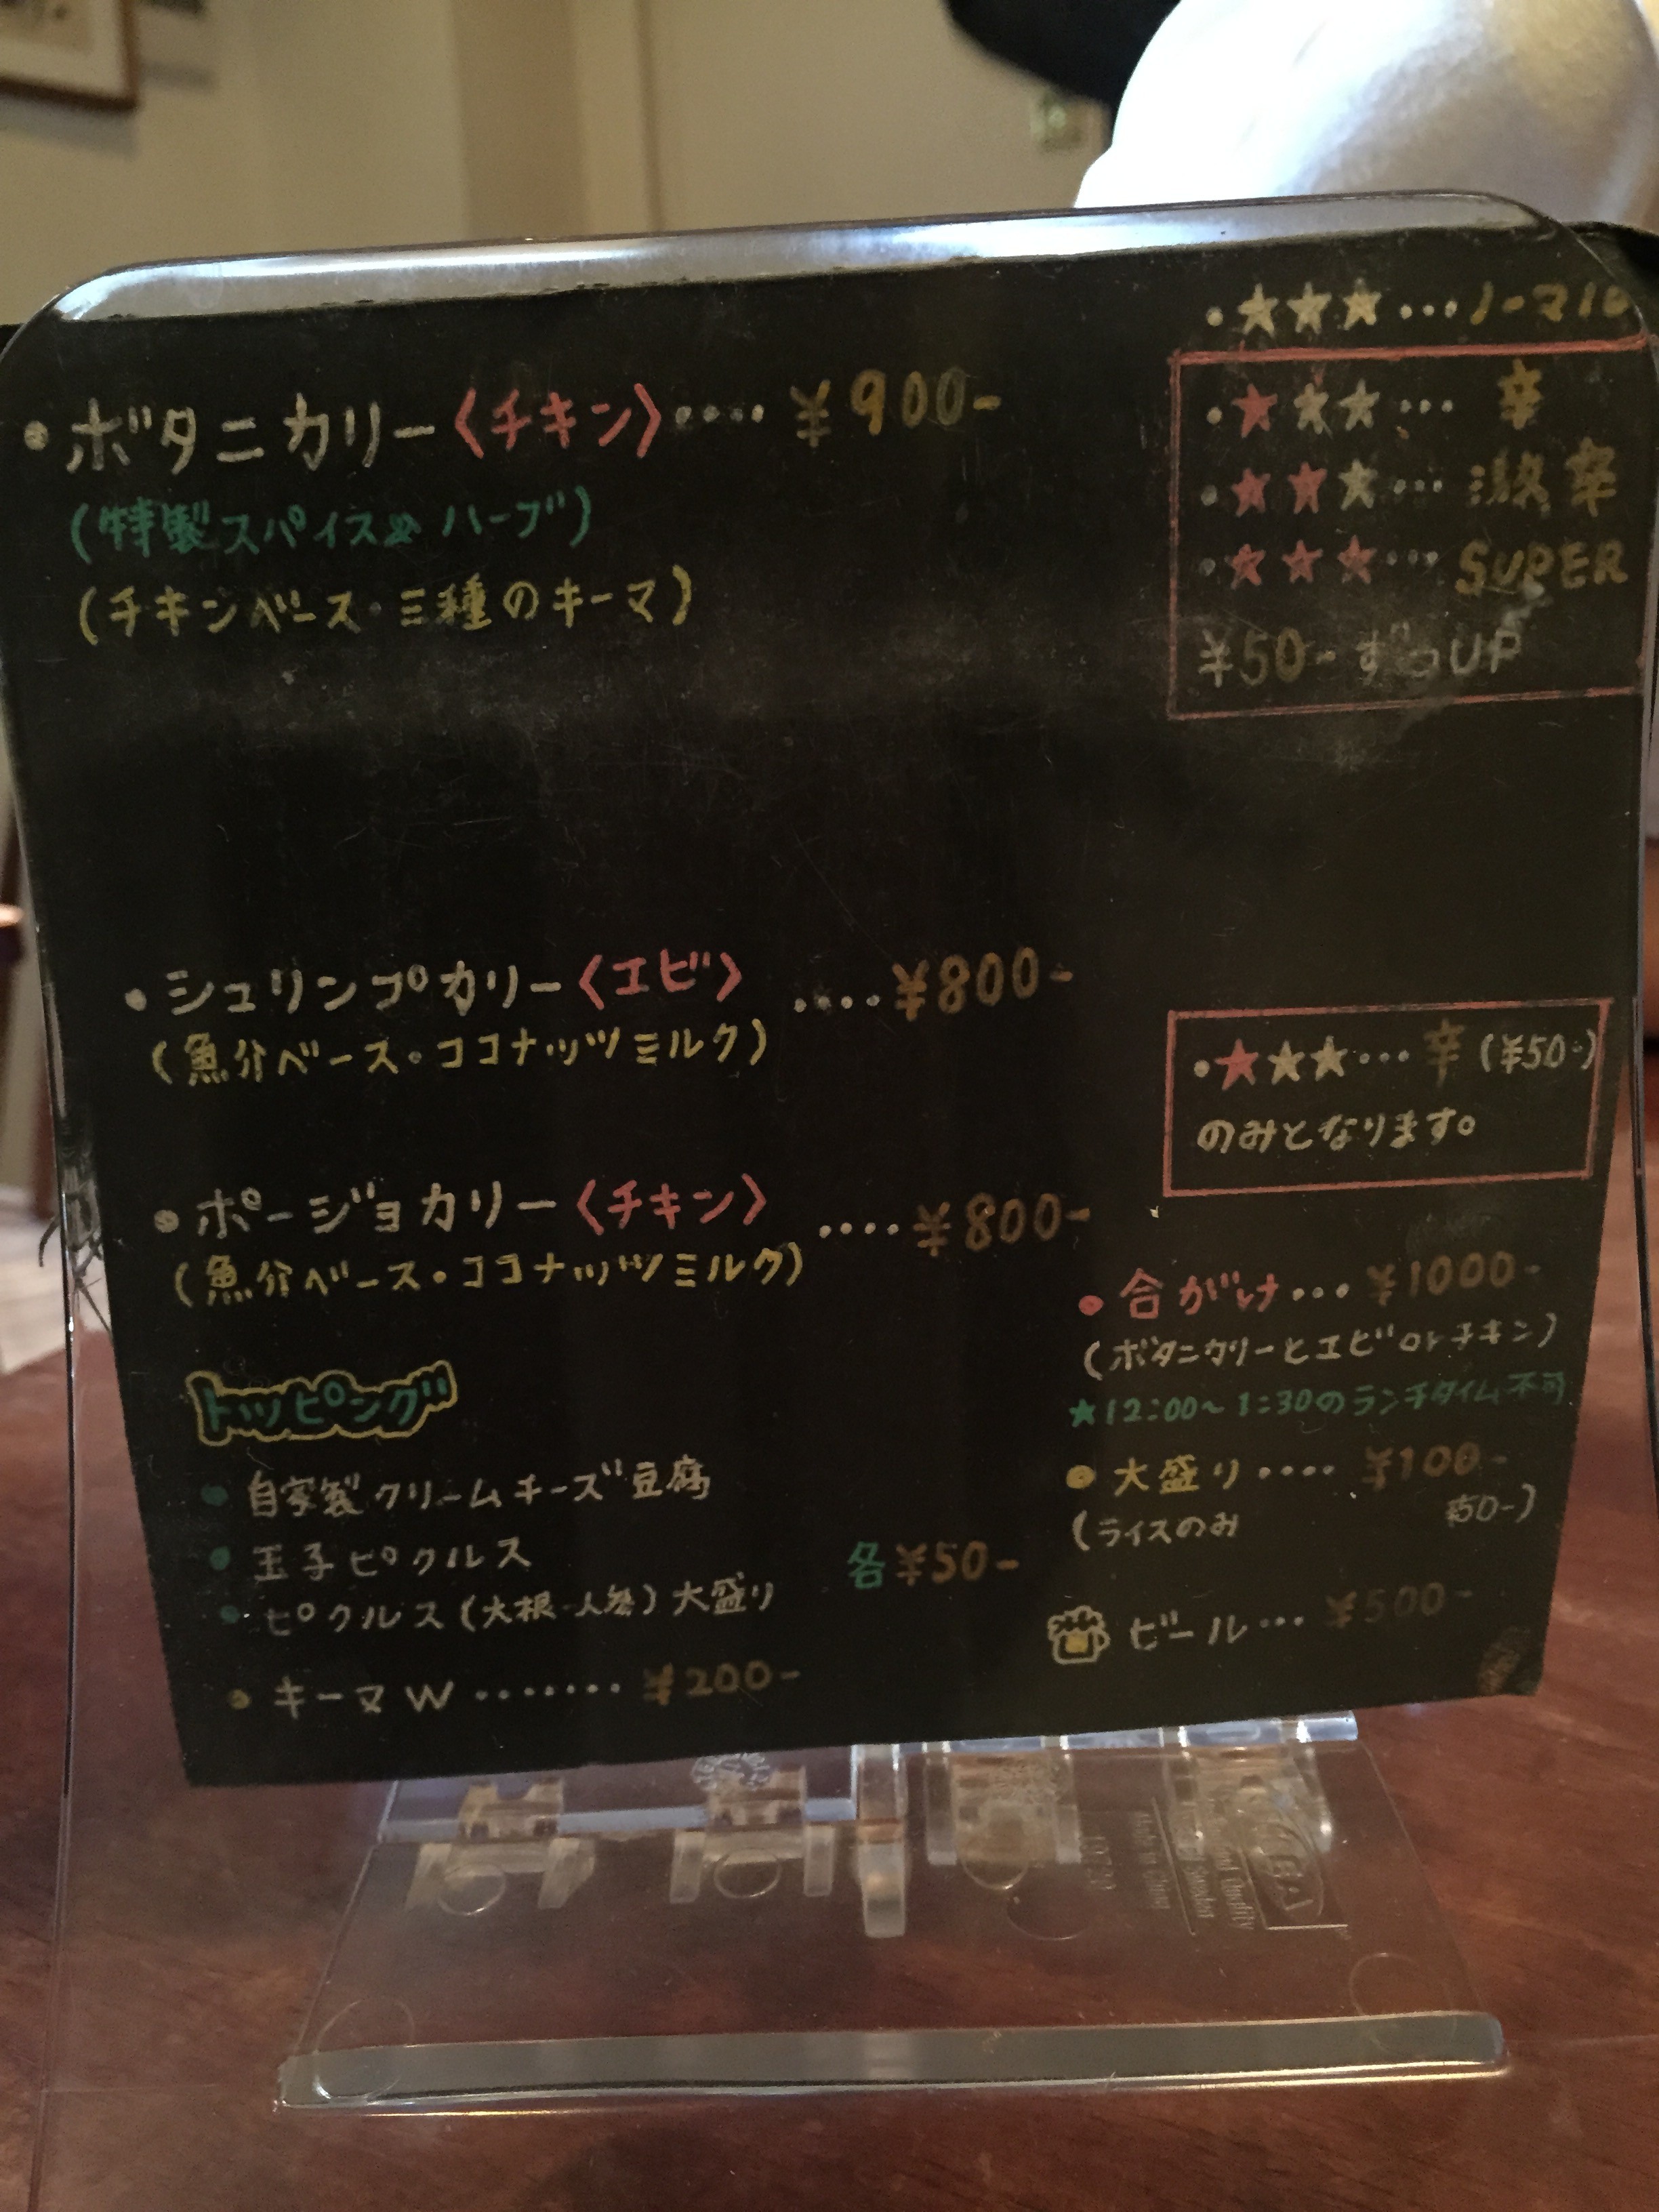 ・★★★…ノーマル
・ボタニカリー〈チキン〉････¥900-
・★★★… 辛
(特製スパイス& ハーブ)
・★★★… 激辛
(チキンベース・三種のキーマ)
・★★★… SUPER
¥50-ずつUP
・シュリンプカリー〈エビ〉････¥800-
(魚介ベース・ココナッツミルク)
・★★★…辛(¥50-)
のみとなります。
・ポージョカリー〈チキン〉････¥800-
(魚介ベース・ココナッツミルク)
・合がけ…¥1000-
(ボタニカリーとエビorチキン)
★12:00~1:30のランチタイム不可
トッピング
・自家製クリームチーズ豆腐
・玉子ピクルス
・ピクルス(大根・人参)大盛り
各¥50-
・キーマW ･･･････¥200-
・大盛り････¥100-
(ライスのみ ¥50-)
ビール…¥500-